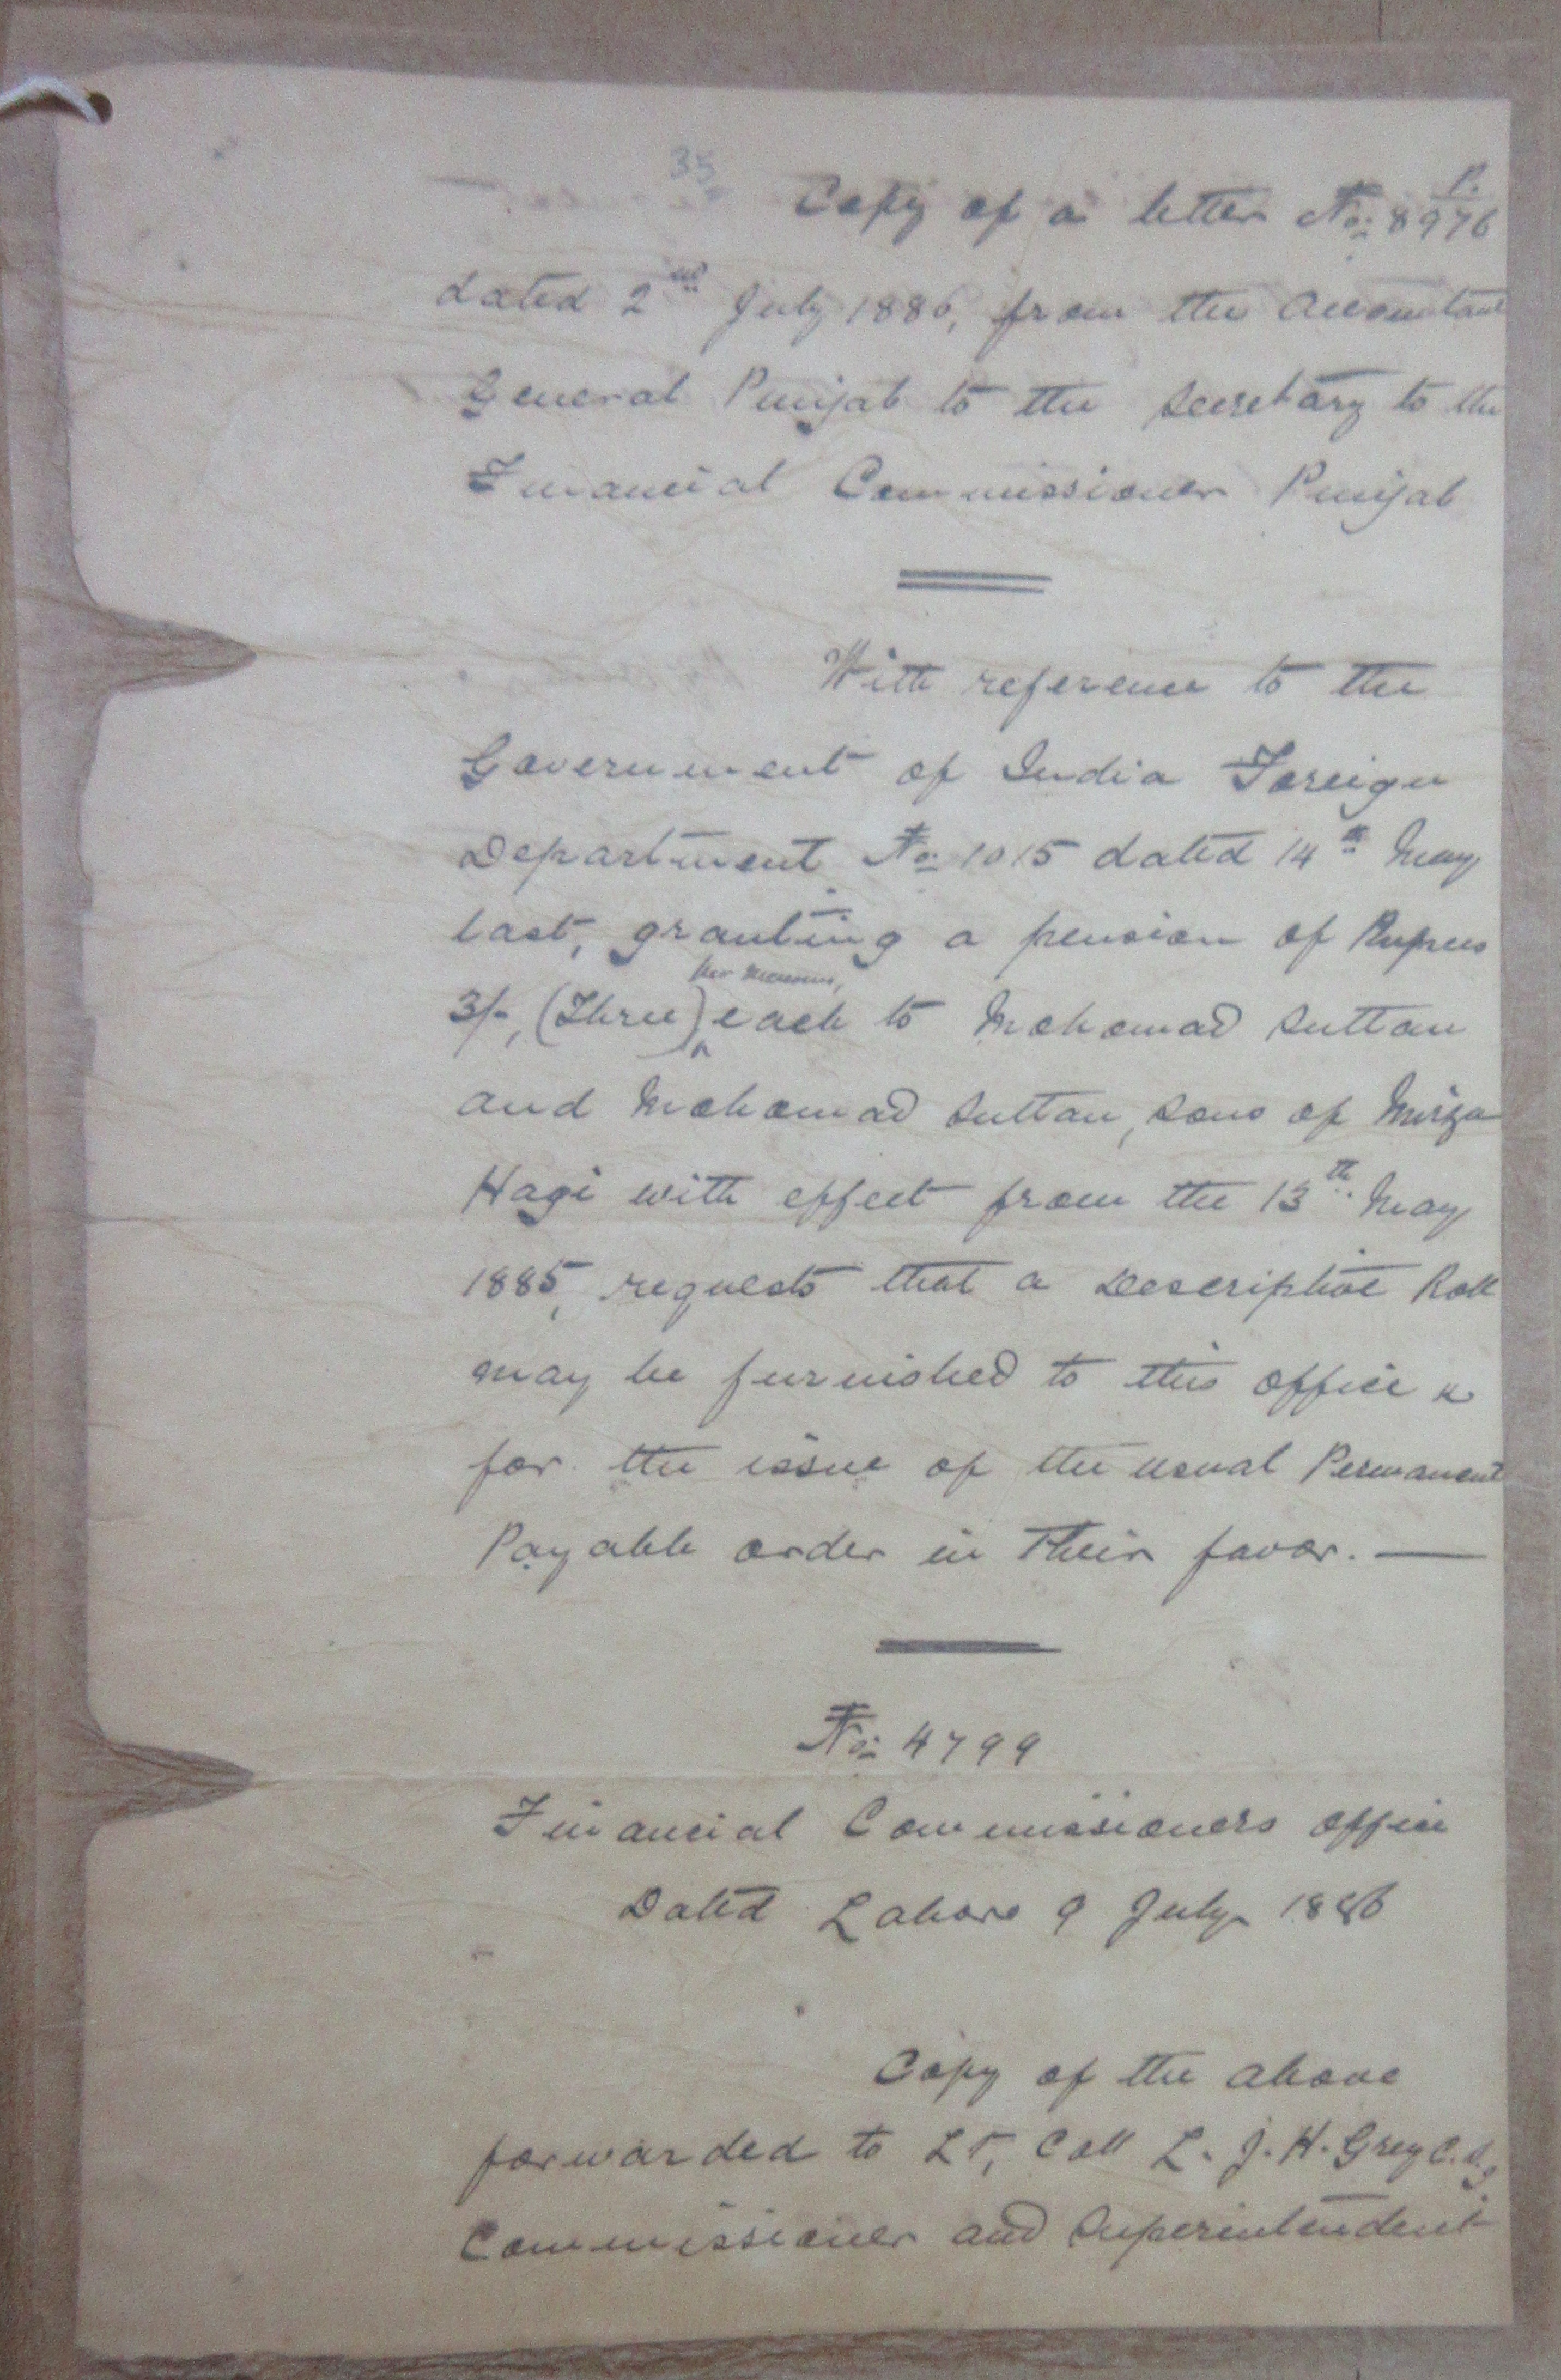 35
Copy of a letter No. 8976 P.
dated 2nd July 1886, from the Accountant
General Punjab to the Secretary to the
Financial Commissioner Punjab
With reference to the
Government of India Foreign
Department No. 1015 dated 14th May
last, granting a pension of Rupees
per mensem,
3/-, (Three) each to Mohamad Sultan
and Mohamad Sultan, sons of Mirza
Hagi with effect from the 13th May
1885, requests that a Descriptive Roll
may be furnished to this office
for the issue of the usual Permanent
Payable order in Their favor. —
No. 4799
Financial Commissioners office
Dated Lahore 9 July 1886
Copy of the above
forwarded to Lt, Coll L. J. H. Grey C.S.
Commissioner and Superintendent